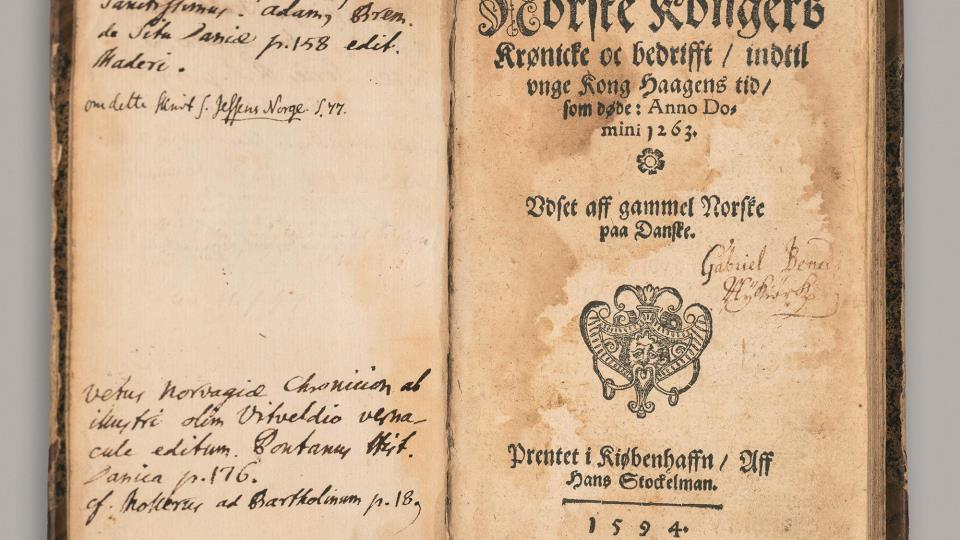 Sanctissimus. Adam, Brem.
de Situ Daniæ p. 158 edit.
Maderi.
om dette skrivt s. Jessens Norge S. 77.
vetus Norvagiæ Chronicion ab
illustri olim Vitveldio verna-
cule editum. Pontanus Hist.
Danica p. 176.
cf. Mollerus ad Bartholinum p. 18
Norske Kongers
Krønicke oc bedrifft / indtil
vnge Kong Haagens tid/
som døde: Anno Do-
mini 1263.
Vdset aff gammel Norske
paa Danske.
Gabriel
Prentet i Kiøbenhaffn / Aff
Hans Stockelman.
1594.